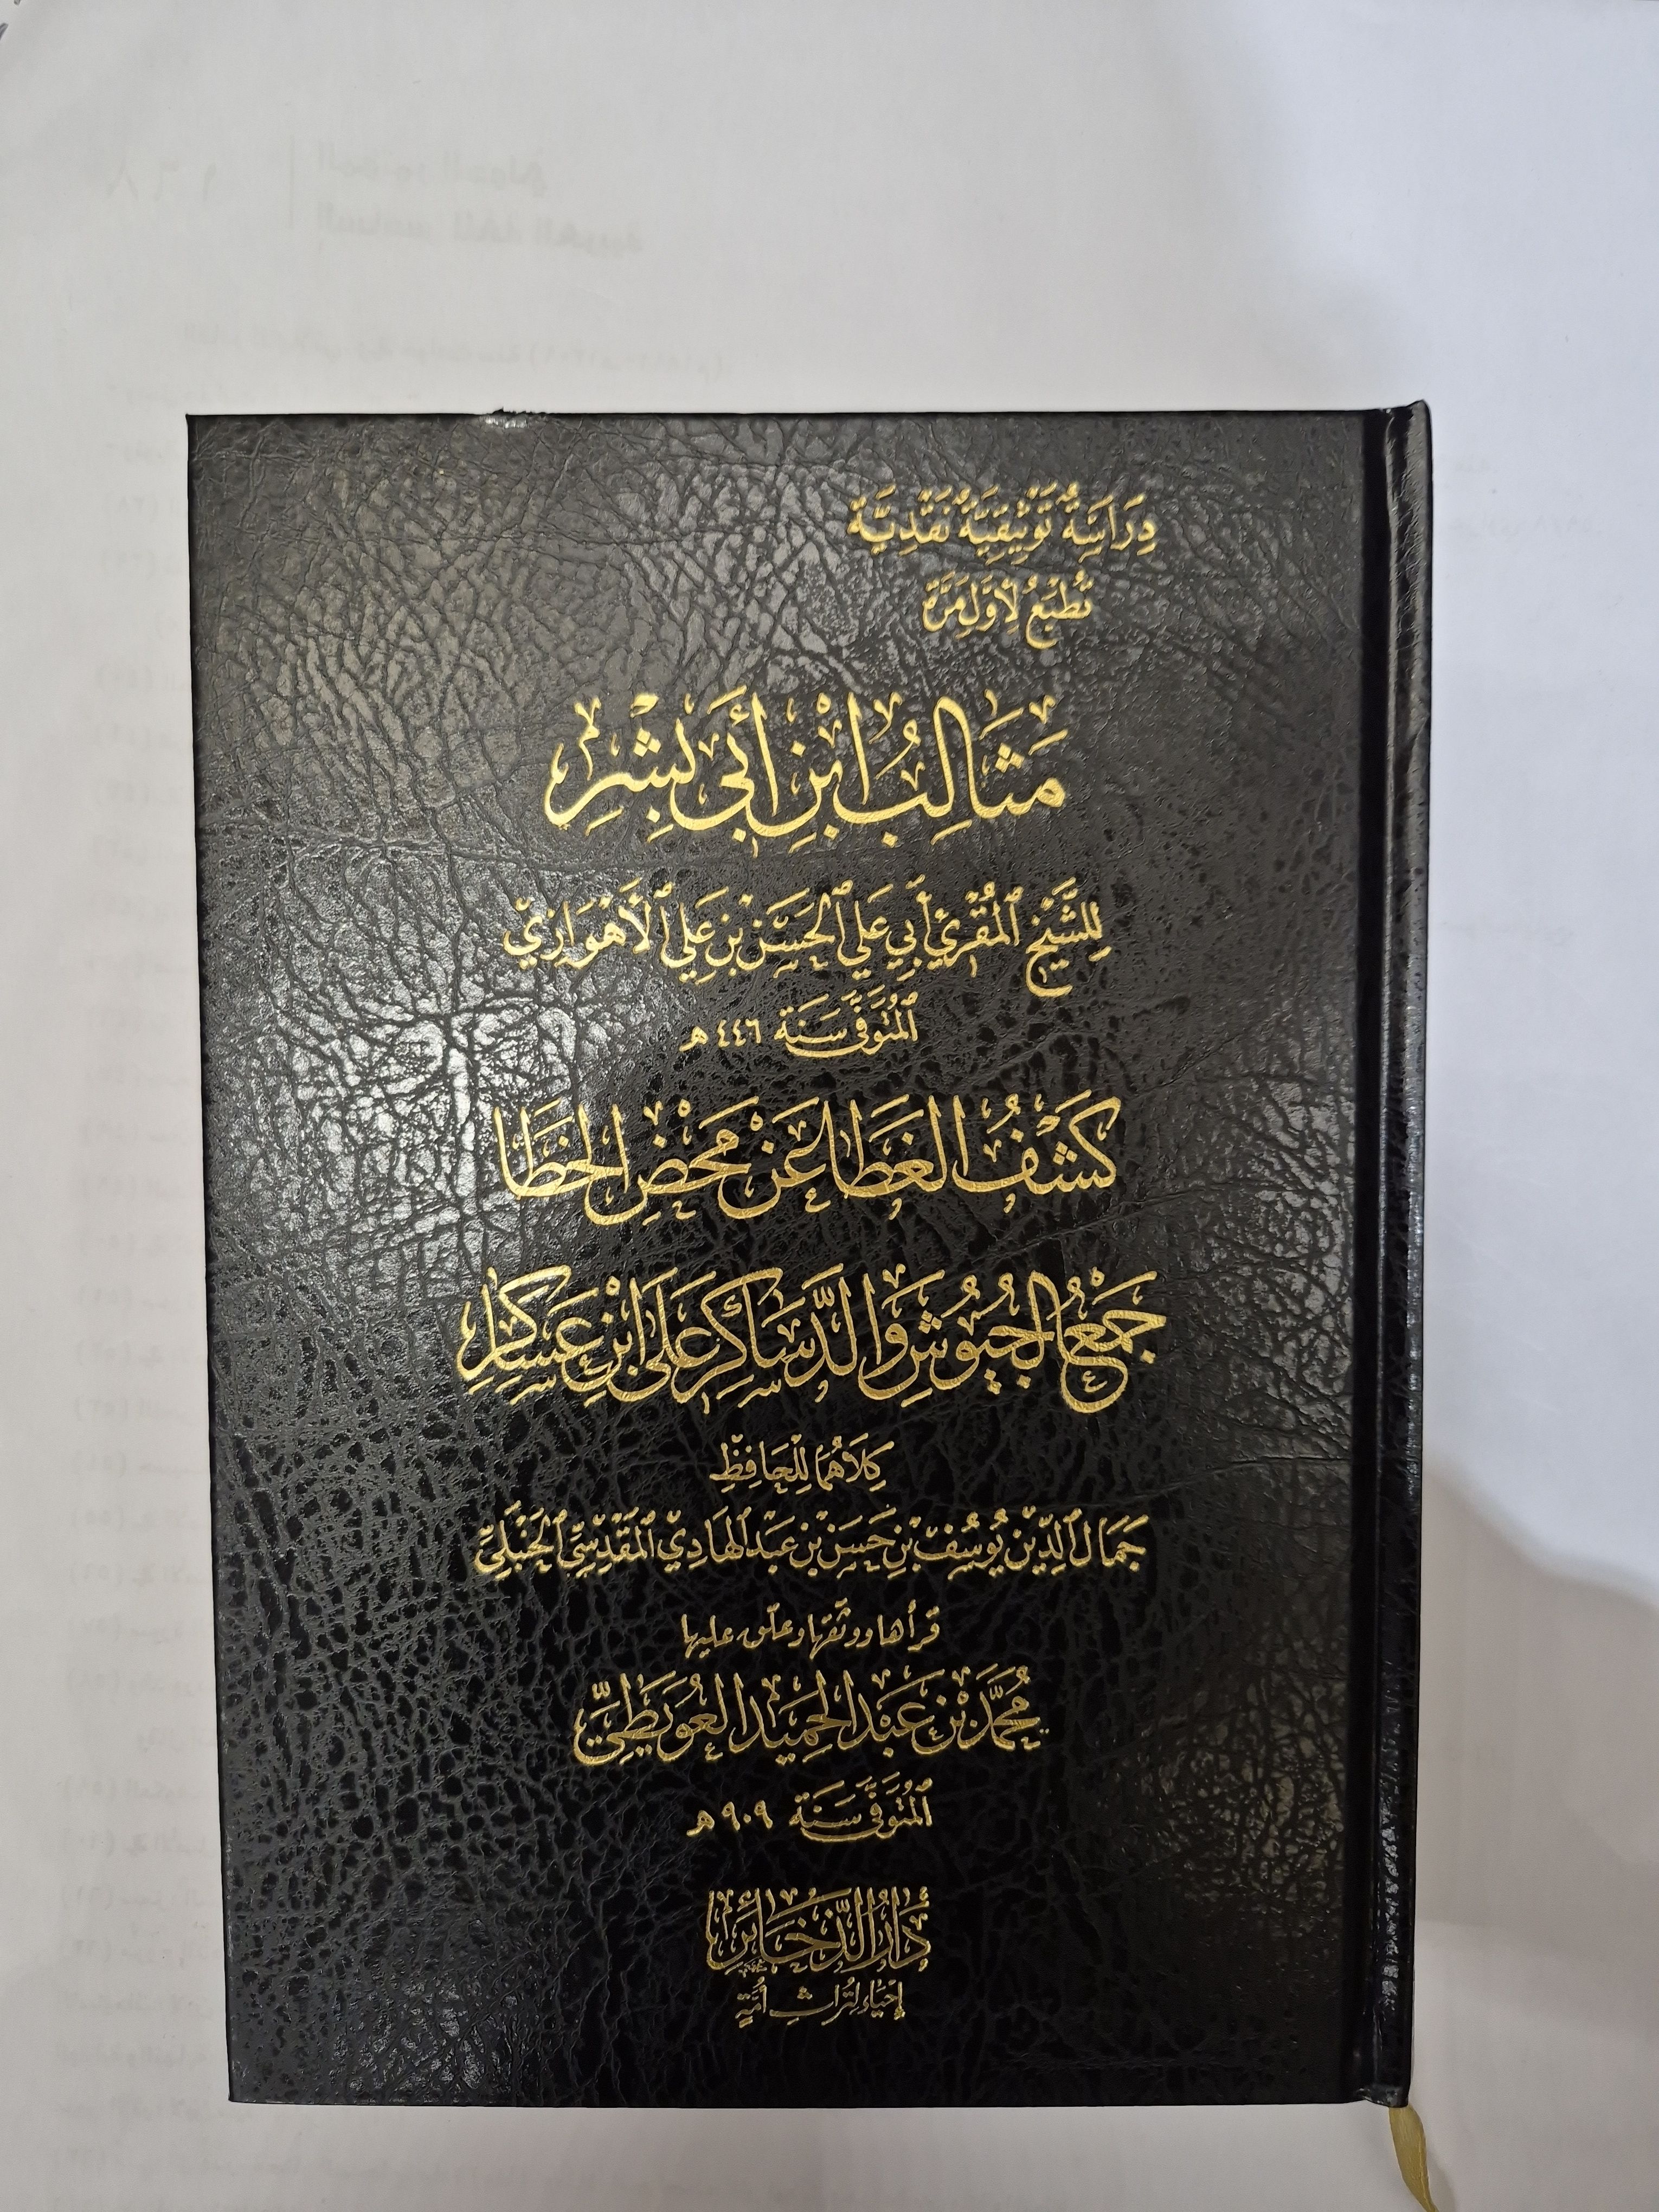 دِرَاسَةٌ تَوْثِيقِيَّةٌ نَقْدِيَّة
تُطْبَعُ لِأَوَّلِ مَرَّة
مَثَالِبُ ابْنِ أَبِي بِشْرٍ
لِلشَّيْخِ الْمُقْرِئِ أَبِي عَلِي الْحَسَنِ بْنِ عَلِي الْأَهْوَازِيّ
الْمُتَوَفَّى سَنَة ٤٤٦ هـ
كَشْفُ الْغِطَاءِ عَنْ مَحْضِ الْخَطَأ
جَمْعُ الْجُيُوشِ وَالدَّسَاكِرِ عَلَى ابْنِ عَسَاكِرِ
كِلَاهُمَا لِلْحَافِظِ
جَمَالِ الدِّيْنِ يُوسُفَ بْنِ حَسَنِ بْنِ عَبْدِ الْهَادِيّ الْمَقْدِسِيِّ الْحَنْبَلِيِّ
قرأها ووثقها وعلق عليها
مُحَمَّد بْن عَبْد الْحَمِيد الْعُوَيْطِيّ
الْمُتَوَفَّى سَنَة ٩٠٩ هـ
دَارُ الذَّخَائِر
إِحْيَاء لِتُرَاثِ أُمَّةٍ